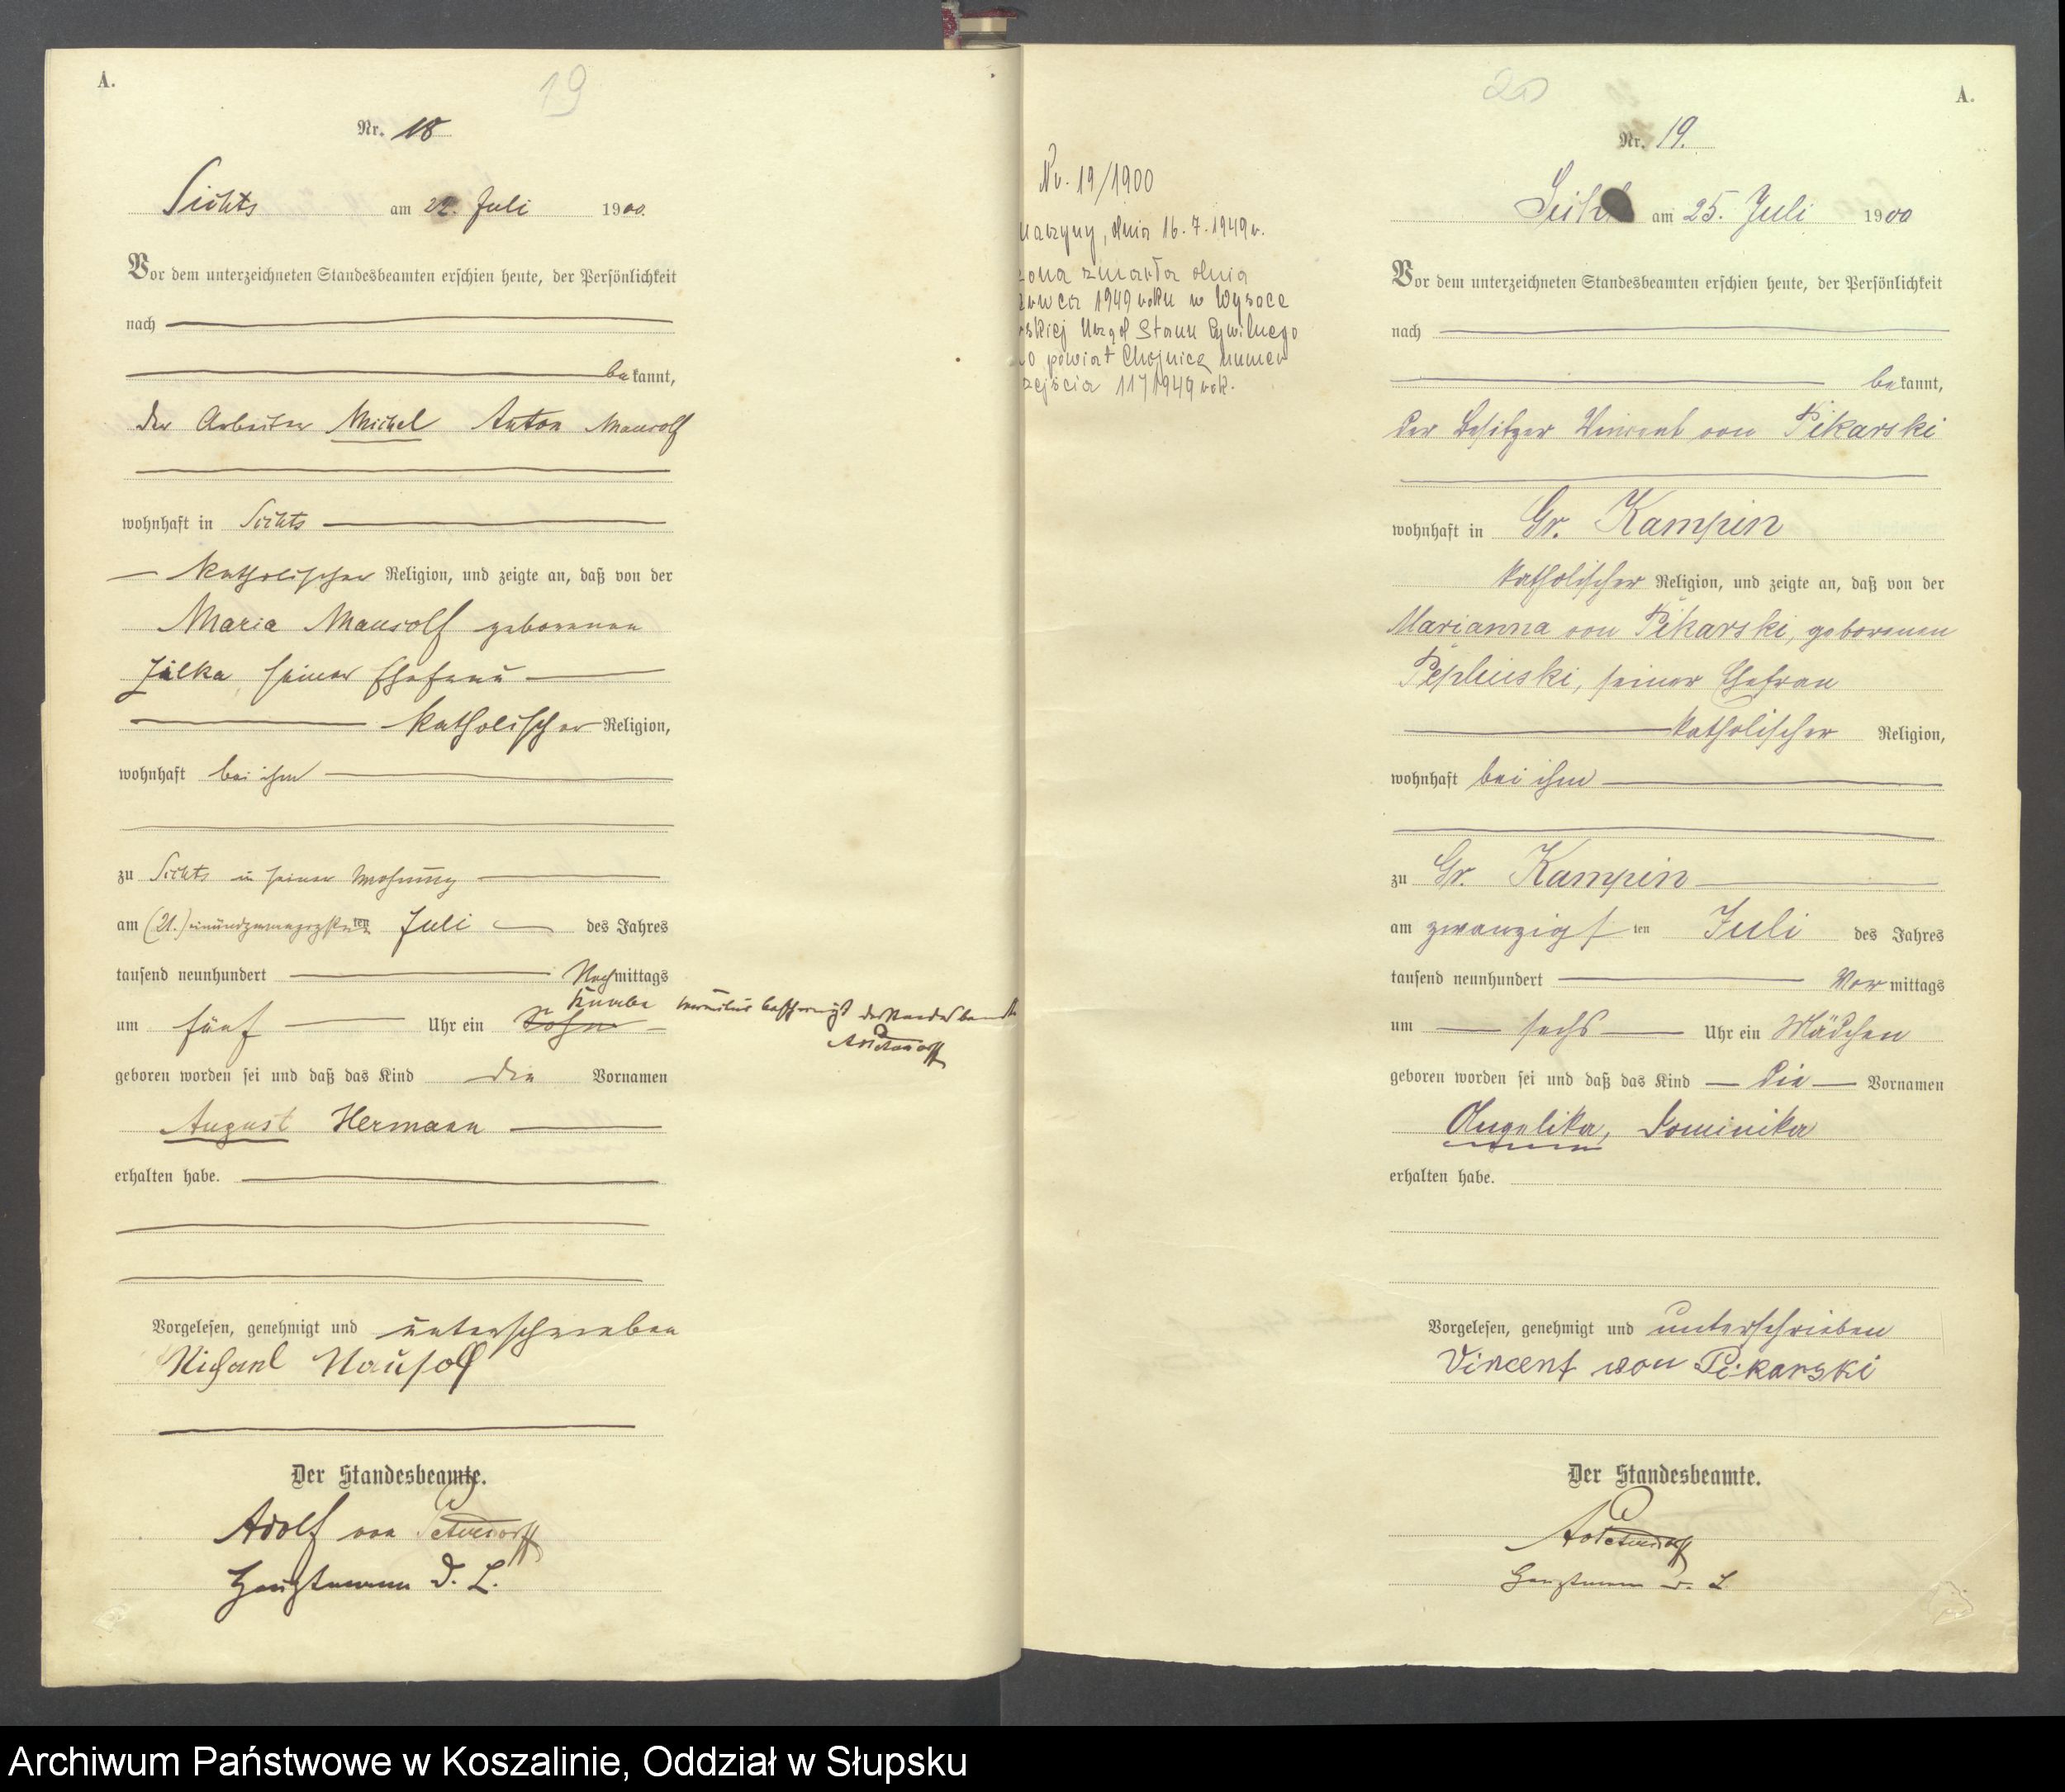 A.
19
Nr. 18
Sichts am 22. Juli 1900.
Vor dem unterzeichneten Standesbeamten erschien heute, der Persönlichkeit
nach
bekannt,
der Arbeiter Michel Anton Mausolf
wohnhaft in Sichts
katholischer Religion, und zeigte an, daß von der
Maria Mausolf geborenen
Jilka seiner Ehefrau
katholischer Religion,
wohnhaft bei ihm
zu Sichts in seiner Wohnung
am (21.) einundzwanzigsten Juli des Jahres
tausend neunhundert Nachmittags
Knabe
um fünf Uhr ein Sohn
geboren worden sei und daß das Kind die Vornamen
August Hermann
erhalten habe.
Vorgelesen, genehmigt und unterschrieben
Michael Mausolf
Der Standesbeamte.
Adolf von
Hauptmann d. L.
20
A.
Nr. 19.
Nr. 19/1900
dnia 16.7.1949r.
ona zmarła dnia
1949 roku w Wysoce
skiej Urząd Stanu Cywilnego
o powiat Chojnice numer
zejścia 11/1949 rok.
am 25. Juli 1900
Vor dem unterzeichneten Standesbeamten erschien heute, der Persönlichkeit
nach
bekannt,
der Besitzer Vincent von Pikarski
wohnhaft in Gr. Kampin
katholischer Religion, und zeigte an, daß von der
Marianna von Pikarski, geborenen
Peplinski, seiner Ehefrau
katholischer Religion,
wohnhaft bei ihm
zu Gr. Kampin
am zwanzigsten Juli des Jahres
tausend neunhundert Vormittags
um sechs Uhr ein Mädchen
geboren worden sei und daß das Kind die Vornamen
Angelika, Dominika
erhalten habe.
Vorgelesen, genehmigt und unterschrieben
Vincent von Pikarski
Der Standesbeamte.
Hauptmann d. L.
Archiwum Państwowe w Koszalinie, Oddział w Słupsku